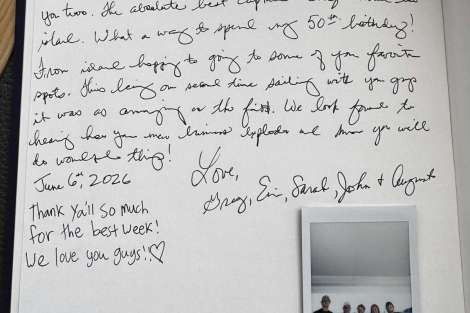 you two. The absolute best
island. What a way to spend my 50th birthday!
From island hopping to going to some of your favorite
spots. This being our second time sailing with you guys
it was as amazing as the first. We look forward to
hearing how your new business explodes and know you will
do wonderful things!
Love,
June 6th, 2026
Greg, Erin, Sarah, John & August
Thank Ya'll So much
for the best week!
We love you guys!! ♡